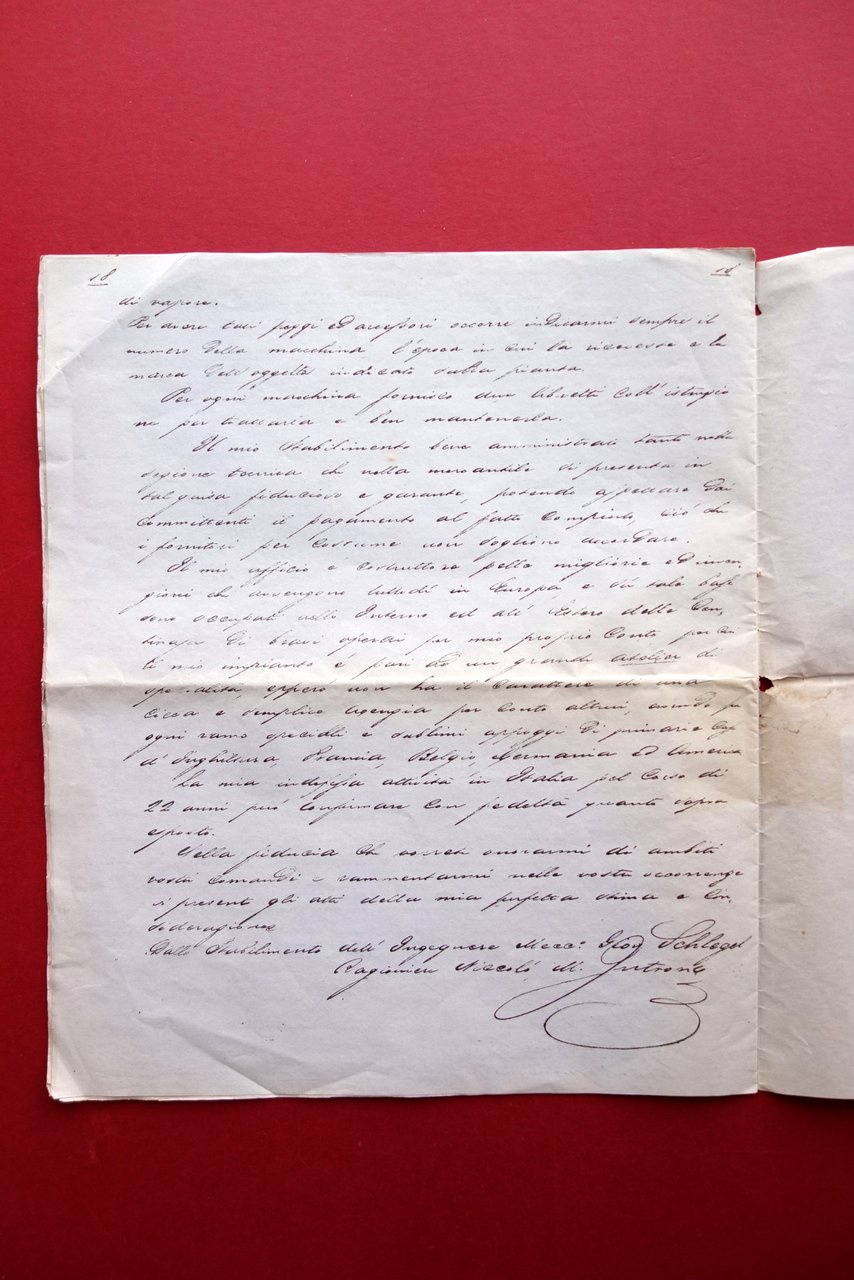 18 18
di vapore.
Per avere tali pezzi ed accessori occorre indicarmi sempre il
numero della macchina l'epoca in cui la ricevesse e la
marca dell'oggetto indicato sulla pianta.
Per ogni macchina fornisco due libretti coll'istruzio
ne per trattarla e ben mantenerla.
Il mio Stabilimento bene amministrato tanto nella
sezione tecnica che nella mercantile si presenta in
tal guisa fiducioso e garante, potendo aspettare dai
Committenti il pagamento al fatto compiuto, ciò che
i fornitori per costume non sogliono accordare.
Il mio ufficio è costruttore pelle migliorie ed inven,
zioni che avvengono tuttodì in Europa e su tale base
sono occupati nello Interno ed all'Estero delle Cen,
tinaja di bravi operai per mio proprio Conto per cui
il mio impianto è pari ad un grande atelier di
specialità, epperò non ha il carattere di una
cieca e semplice Agenzia per conto altrui, avendo per
ogni ramo speciali e sublimi appoggi di primarie Case
d'Inghilterra, Francia, Belgio, Germania ed America
La mia indefessa attività in Italia pel corso di
22 anni può confirmare con fedeltà quanto sopra
esposto.
Nella fiducia che vorrete onorarmi di ambiti
vostri comandi e rammentarmi nelle vostre occorrenze
vi presento gli atti della mia perfetta stima e Con,
siderazione
Dallo Stabilimento dell'Ingegnere Mecc: Giov Schlegel
Ragioniere Niccolò M.